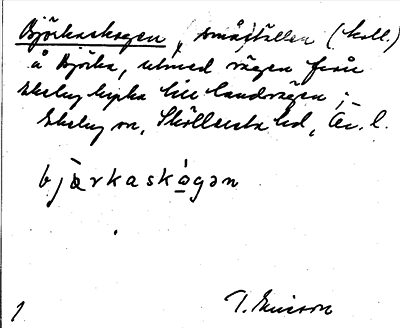 Björkaskogen, småställen (koll.)
å Björka, utmed vägen från
Ekeby kyrka till landsvägen;
Ekeby sn, Sköllersta hd, Ör. l.
bjærkaskò̱gən
T. Ericson
1